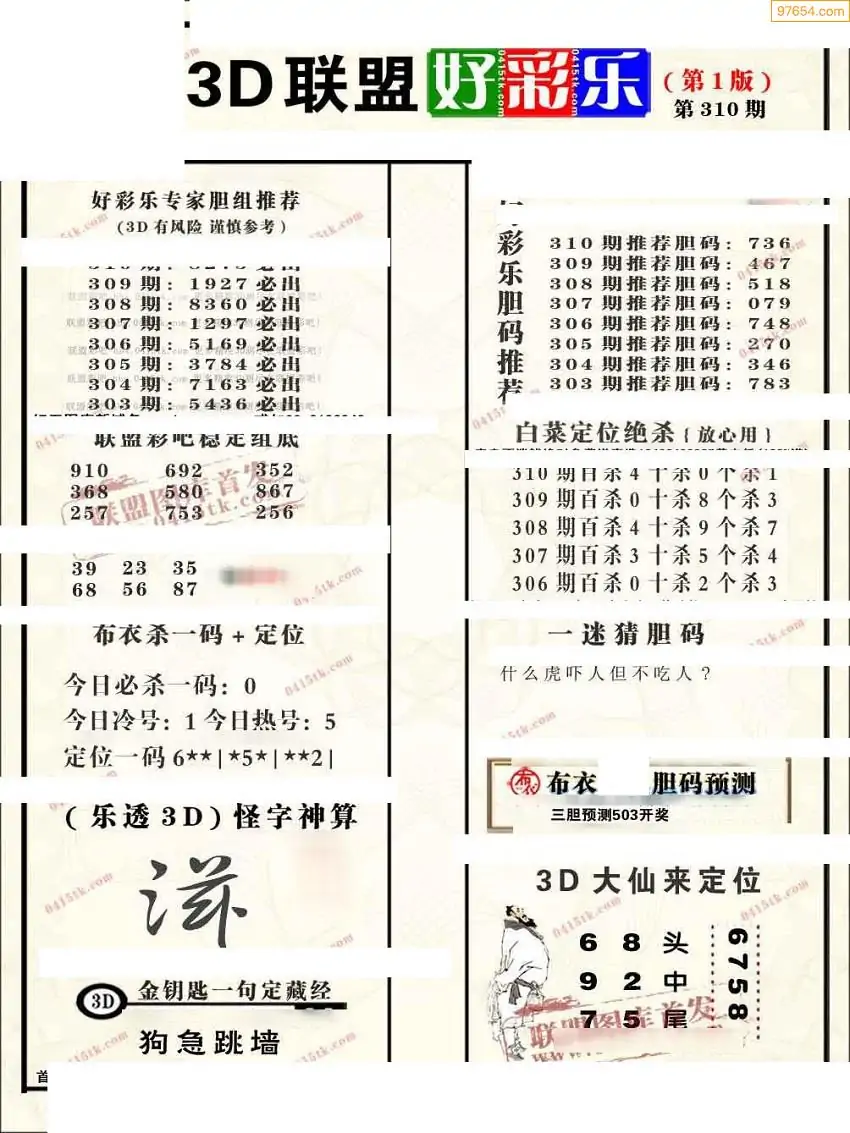 97654.com
3D联盟好彩乐
(第1版)
第310期
好彩乐专家胆组推荐
(3D有风险 谨慎参考)
309期: 1927必出
308期: 8360必出
307期: 1297必出
306期: 5169必出
305期: 3784必出
304期: 7163必出
303期: 5436必出
联盟彩吧稳定组底
910 692 352
368 580 867
257 753 256
39 23 35
68 56 87
布衣杀一码+定位
今日必杀一码: 0
今日冷号: 1 今日热号: 5
定位一码6**|*5*|**2|
(乐透3D)怪字神算
滋
3D 金钥匙一句定藏经
狗急跳墙
首
彩乐胆码推荐
310期推荐胆码: 736
309期推荐胆码: 467
308期推荐胆码: 518
307期推荐胆码: 079
306期推荐胆码: 748
305期推荐胆码: 270
304期推荐胆码: 346
303期推荐胆码: 783
白菜定位绝杀{放心用}
310期百杀4十杀0个杀1
309期百杀0十杀8个杀3
308期百杀4十杀9个杀7
307期百杀3十杀5个杀4
306期百杀0十杀2个杀3
一迷猜胆码
什么虎吓人但不吃人?
布衣 胆码预测
三胆预测503开奖
3D大仙来定位
6 8 头
9 2 中
7 5 尾
6758
联盟图库首发
0415tk.com